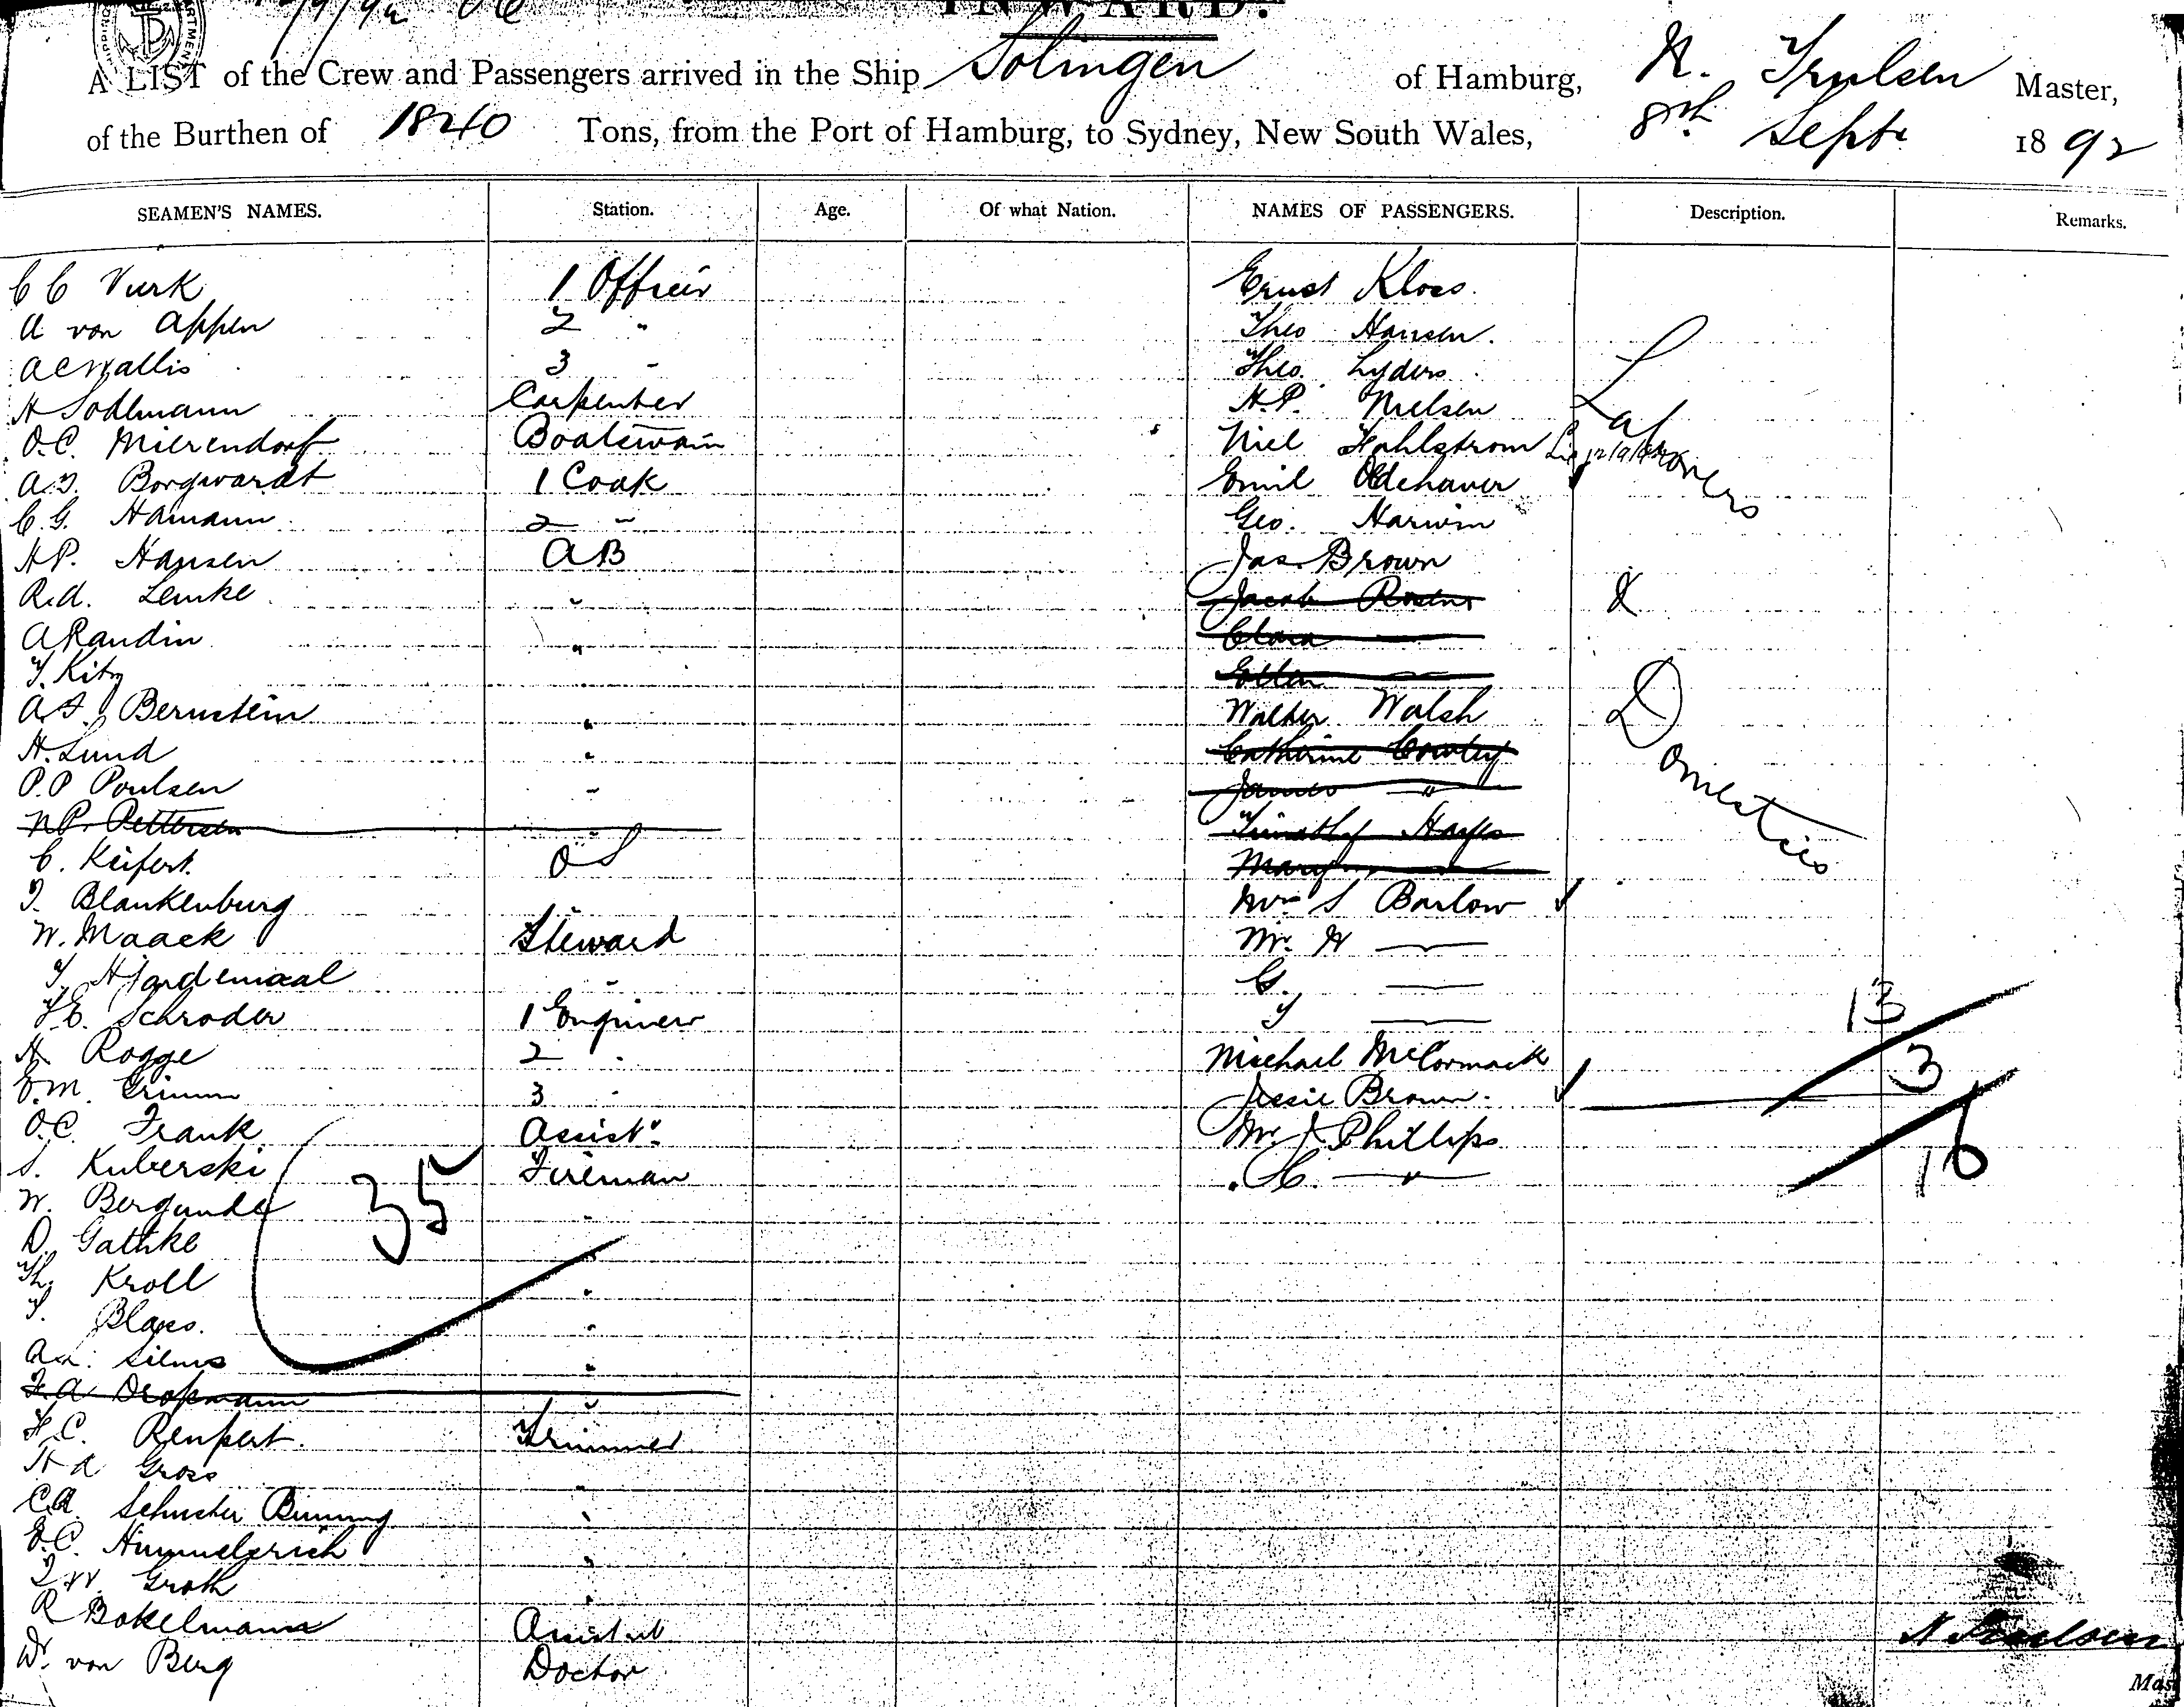 INWARD.
A LIST of the Crew and Passengers arrived in the Ship Solingen of Hamburg, N. Trulsen Master,
of the Burthen of 1840 Tons, from the Port of Hamburg, to Sydney, New South Wales, 8th Septr 1892
SEAMEN'S NAMES. Station. Age. Of what Nation. NAMES OF PASSENGERS. Description. Remarks.
C C Vurk 1 Officer Ernst Kloss.
A von Appen 2 " Theo Hansen.
A C Wallis 3 " Theo. Lyders
H Sohlmann Carpenter H.P. Nielsen Labourers
O.C. Mierendorf Boatswain Niel Fahlstrom
A.J. Borgwardt 1 Cook Emil Oldehaver
C.G. Hamann 2 " Geo. Harwin
H.P. Hansen AB Jas Brown
R.d. Lemke " Jacob Rosens &
A Randin " Clara —
J. Kitz " —
A.F. Bernstein " Walter Walsh Domestics
H. Lund " Catherine Cowley
P.P Poulsen " James "
N.P. Pettersen " Timothy Hayes
C. Keifert. OS Mary —
J. Blankenburg Mrs S Barlow
W. Maack Steward Mr. H —
J. Hjardemaal " G. —
J.E. Schroder 1 Engineer Y — 13
H. Rogge 2 " Michael McCormack 3
E.M. Grimm 3 " Jessie Brown.
O.C. Frank Assistt. Mr. J Phillips 16
S. Kuberski Fireman C. — " —
W. Bergunde " 35
D. Gathke "
Th. Kroll "
J. Blaes. "
Silms "
F.A. "
H.C. Renpert. Trimmer
H A Gross "
C.A Schuster "
E.C. Himmelreich "
J.W. Groth "
R Bokelmann Assistant N Trulsen
Dr. von Berg Doctor Mas